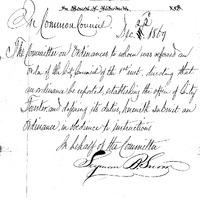 In Common Council
Dec. 2d 1867
The Committee on Ordinances to whom was referred an
order of the City Council of the 1st inst., directing that
an ordinance be reported, establishing the office of City
and defining its duties, herewith submit an
Ordinance in obedience to instructions
In behalf of the Committee
Seymour